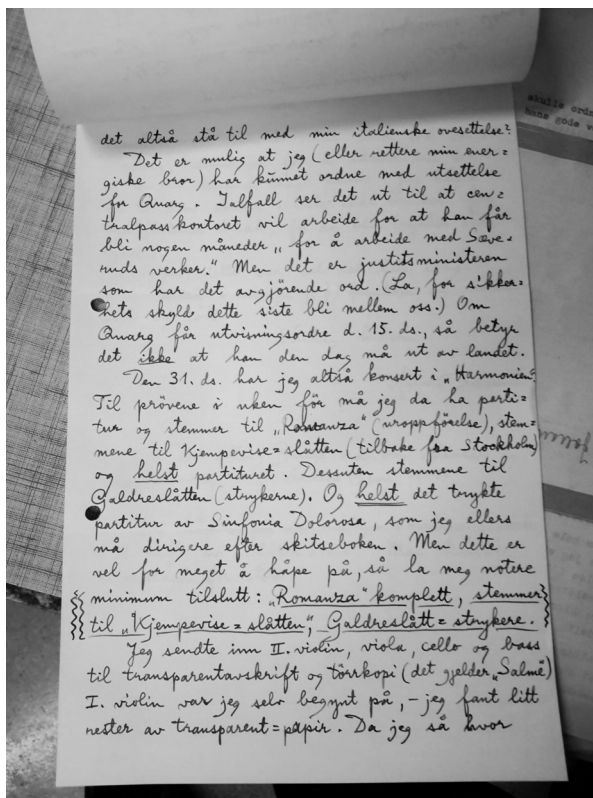 det altså stå til med min italienske ovesettelse?
Det er mulig at jeg (eller rettere min ener=
giske bror) har kunnet ordne med utsettelse
for Quarg. Ialfall ser det ut til at cen=
tralpasskontoret vil arbeide for at han får
bli nogen måneder „for å arbeide med Sæve=
ruds verker." Men det er justitsministeren
som har det avgjörende ord. (La, for sikker=
hets skyld dette siste bli mellem oss.) Om
Quarg får utvisningsordre d. 15. ds., så betyr
det ikke at han den dag må ut av landet.
Den 31. ds. har jeg altså konsert i „Harmonien".
Til prövene i uken för må jeg da ha parti=
tur og stemmer til „Romanza" (uroppförelse), stem=
mene til Kjempevise=slåtten (tilbake fra Stockholm)
og helst partituret. Dessuten stemmene til
Galdreslåtten (strykerne). Og helst det trykte
partitur av Sinfonia Dolorosa, som jeg ellers
må dirigere efter skitseboken. Men dette er
vel for meget å håpe på, så la meg notere
minimum tilslutt: „Romanza" komplett, stemmer
til „Kjempevise=slåtten", Galdreslått=strykere.
Jeg sendte inn II. violin, viola, cello og bass
til transparentavskrift og törrkopi (det gjelder „Salme")
I. violin var jeg selv begynt på, – jeg fant litt
rester av transparent=papir. Da jeg så hvor
skulle ord
hans gode